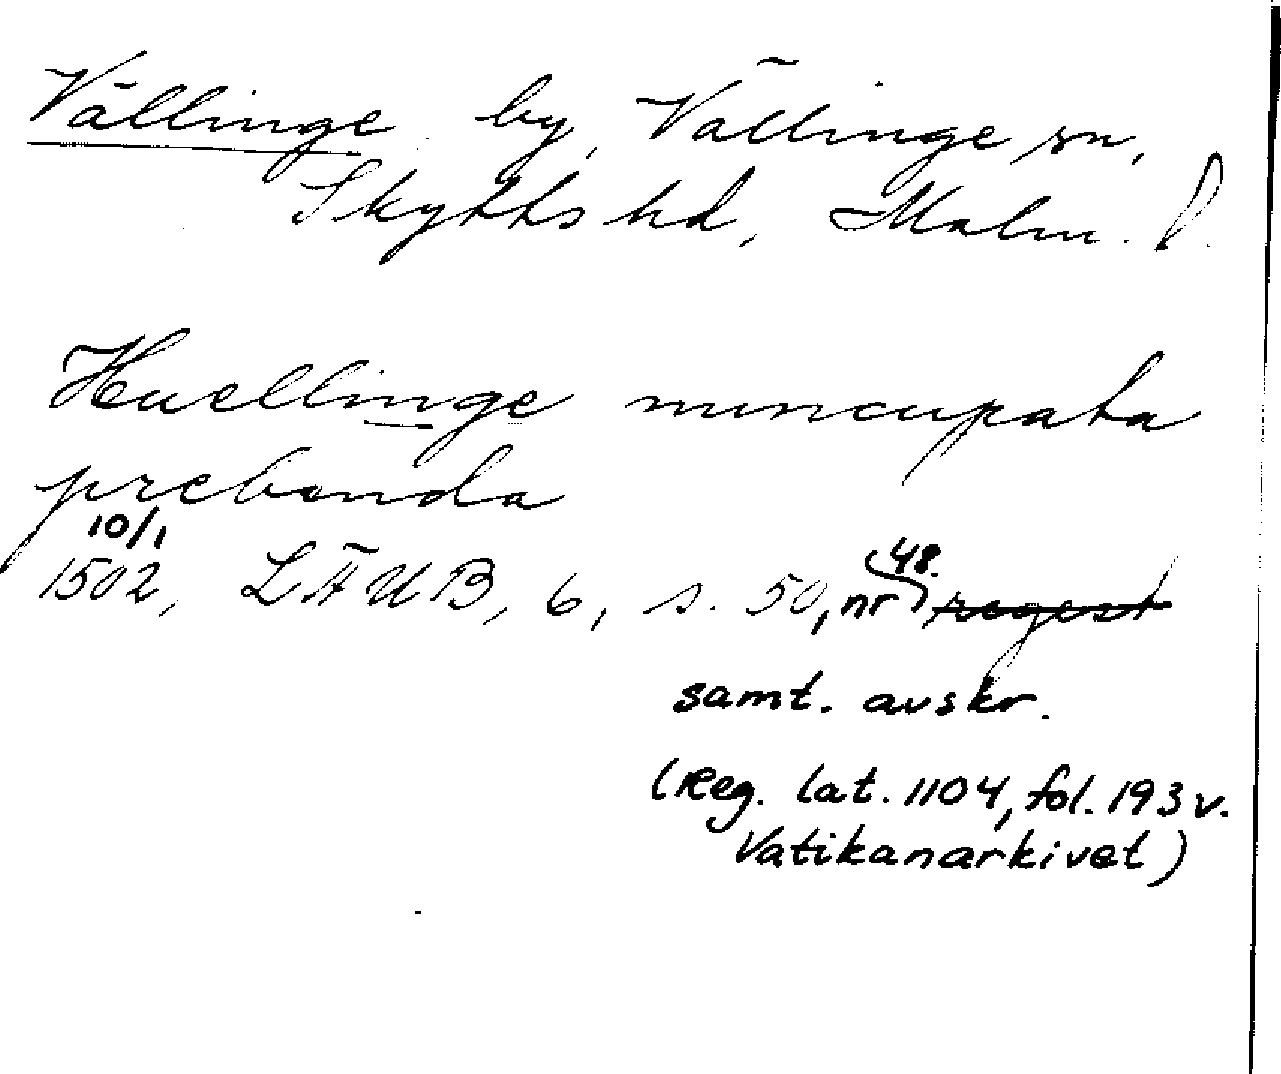 Vällinge by, Vällinge sn,
Skytts hd, Malm. l.
Huellinge nuncupata
prebenda
10/1
1502, LÄUB, 6, s. 50, nr 48. regest
samt. avskr.
(Reg. lat. 1104, fol. 193 v.
Vatikanarkivet)